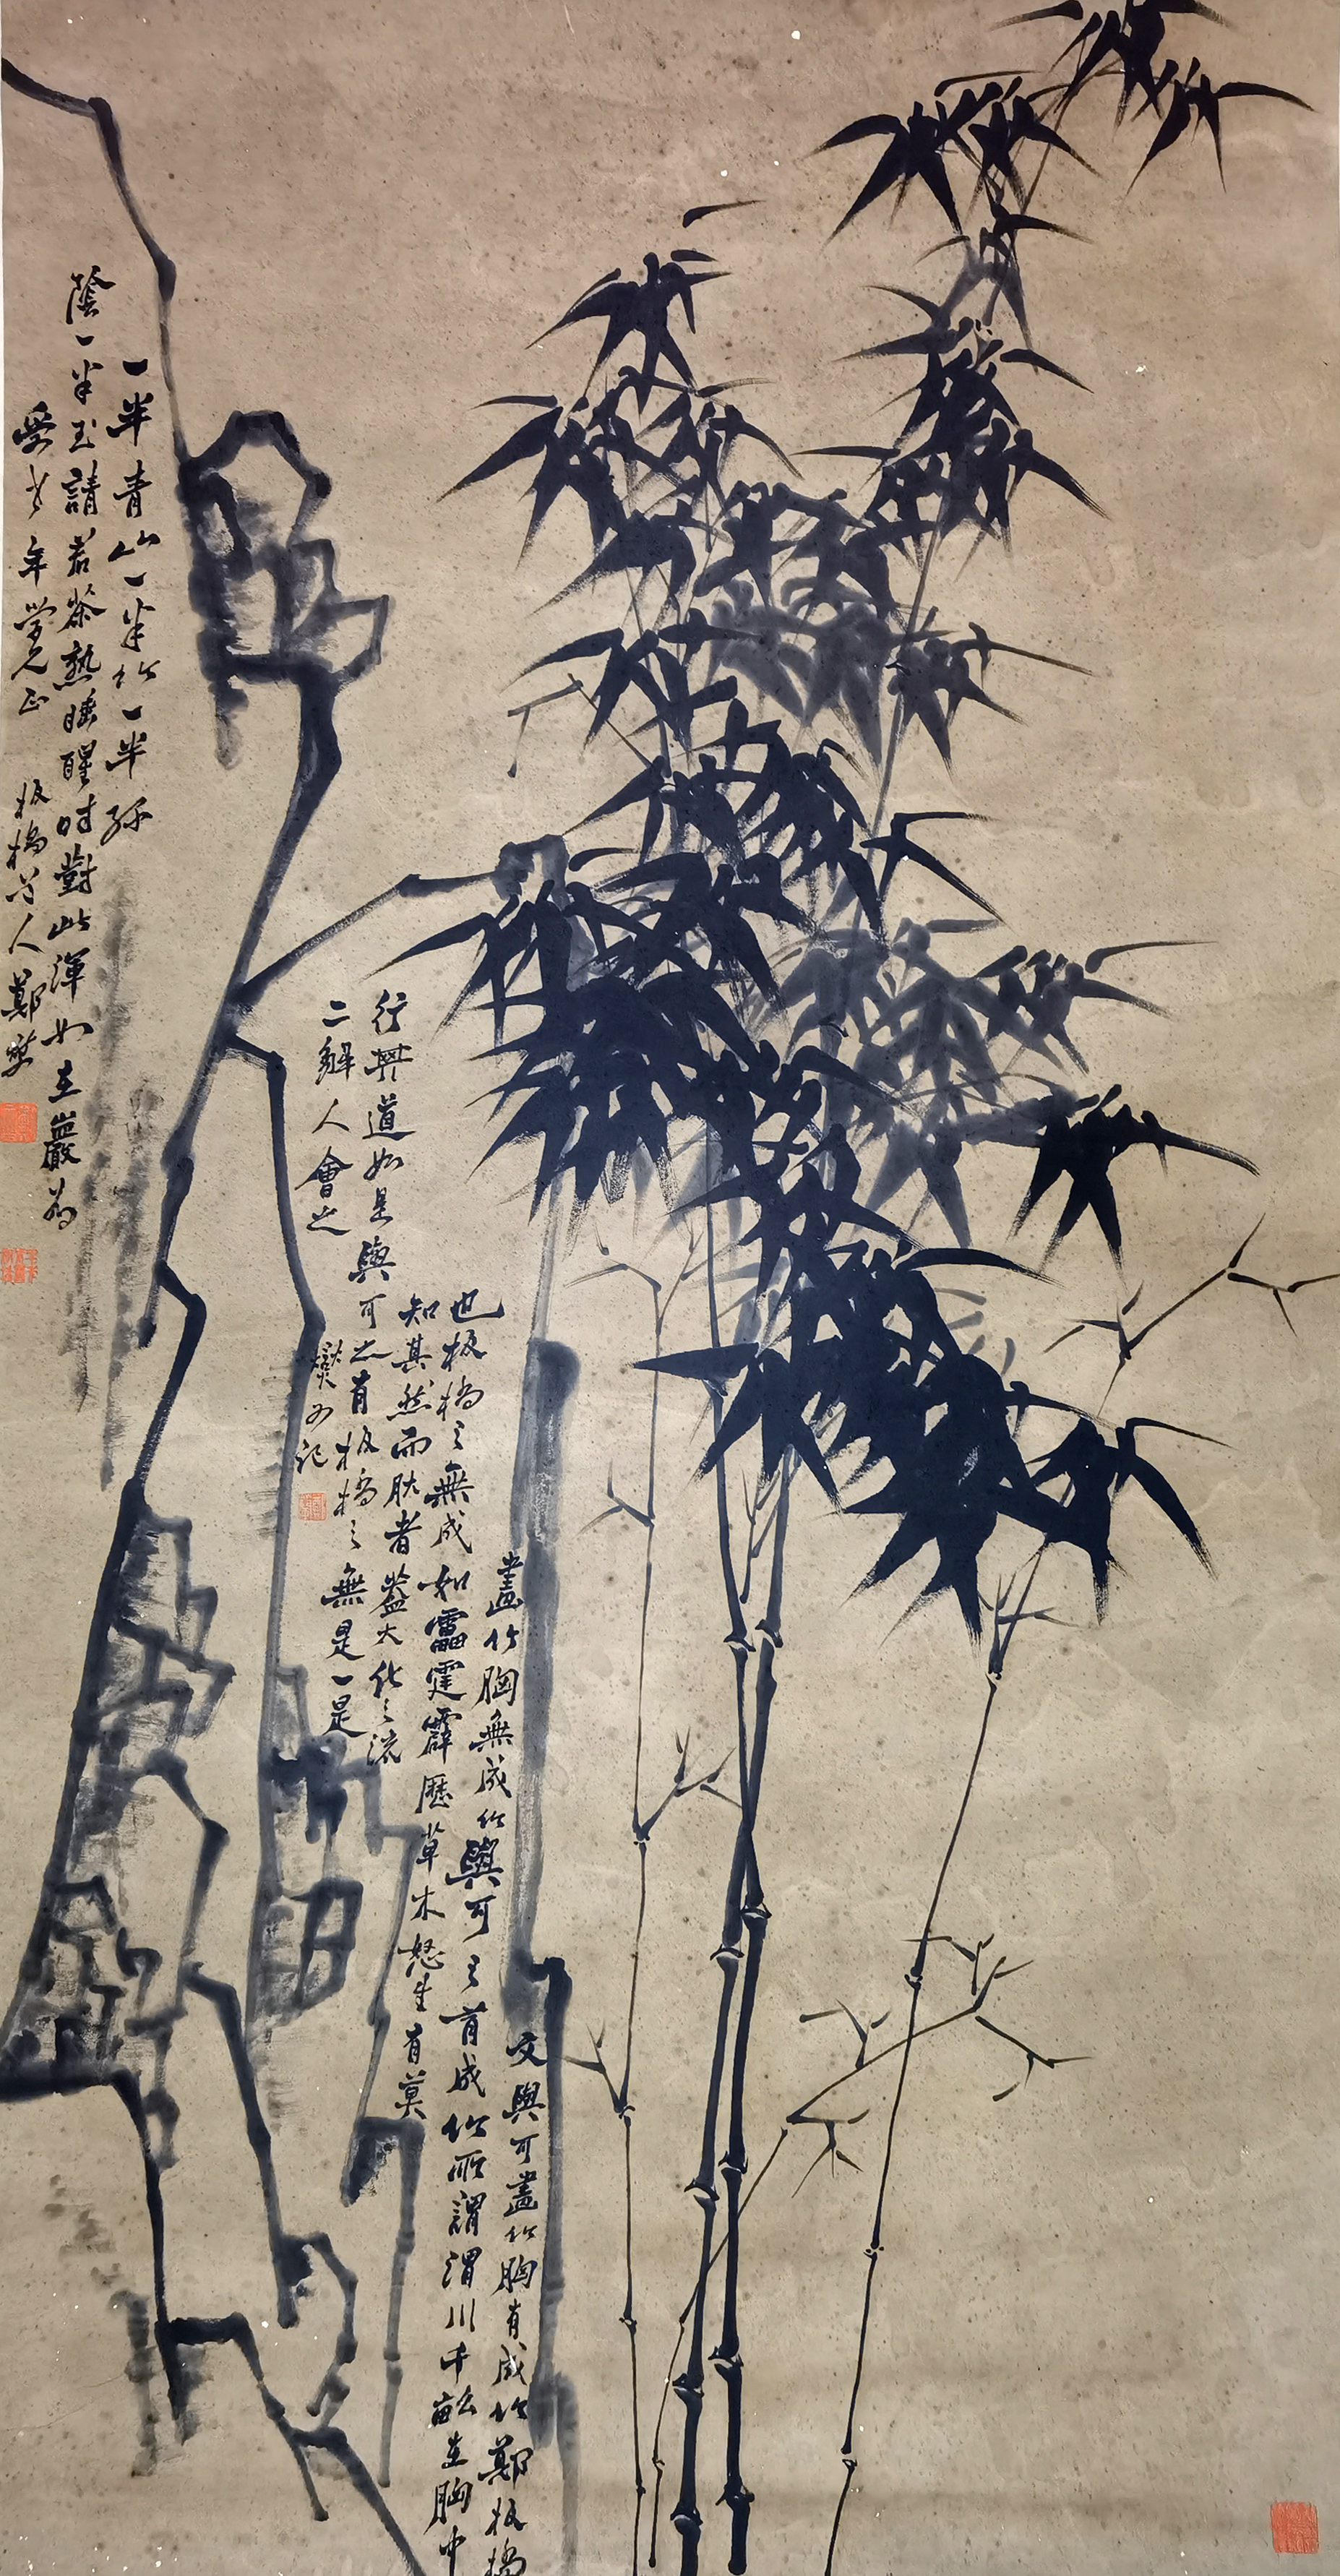 文與可畫竹胸有成竹鄭板橋
畫竹胸無成竹與可之有成竹所謂渭川千畝在胸中
也板橋之無成如雷霆霹歷草木怒生有莫
知其然而肰者蓋大化之流
行其道如是與可之有板橋之無是一是
二解人會之
燮又記
一半青山一半竹一半綠
陰一半玉請君茶熟睡醒時對此渾如在巖谷
老年學兄正 板橋道人鄭燮